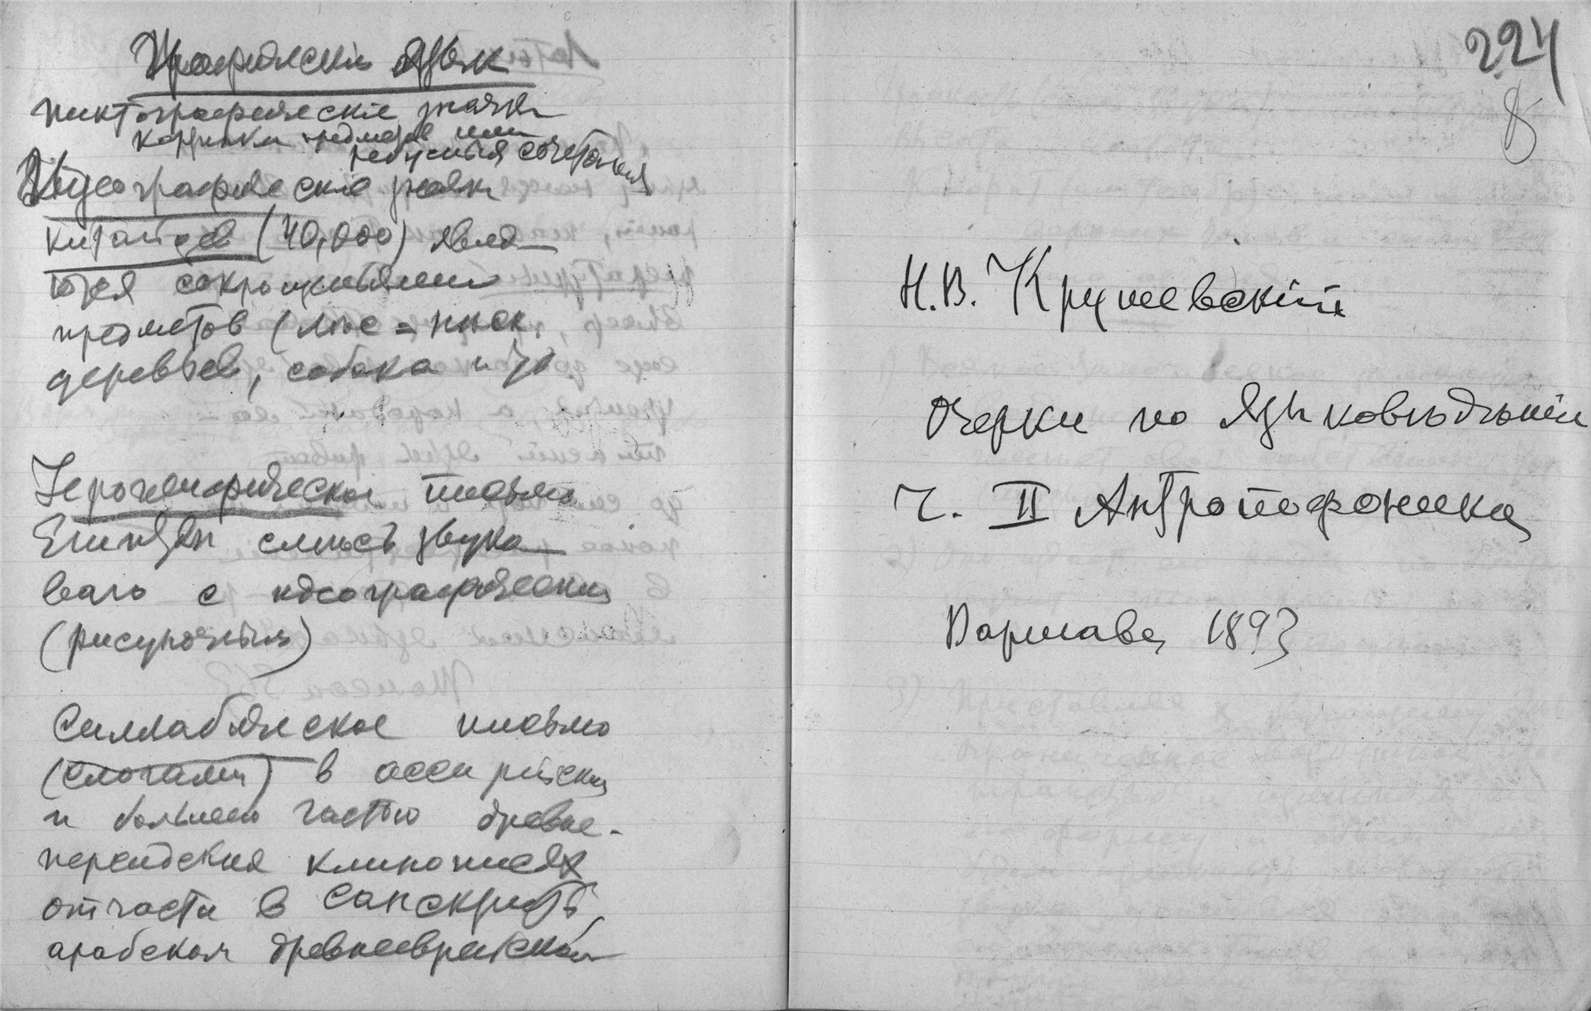 Графическій язык
пиктографическіе значки
картинки предметов или
ребусныя сочетанія
Идеографическіе значки
китайцев (40,000) явля
ются сокращеньями
предметов (лѣс = нѣск.
деревьев, собака и др.
Іероглифическое письмо
Египтян смѣсь звуко
ваго с идеографическим
(рисуночным)
Силлабическое письмо
(слогами) в ассирійских
и большею частью древне-
персидских клинописях
отчасти в санскритѣ,
арабском древнееврейском
224
8
Н.В. Крушевскій
Очерки по Языковѣдѣнію
Ч. II Антропофоника
Варшава, 1893